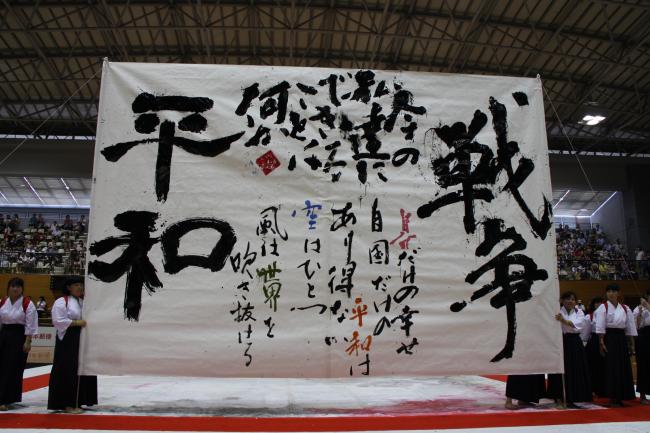 戦争
今の
私達に
できる
ことは
何か
自分だけの幸せ
自国だけの
平和は
あり得ない
空はひとつ
風は世界を
吹き抜ける
平和